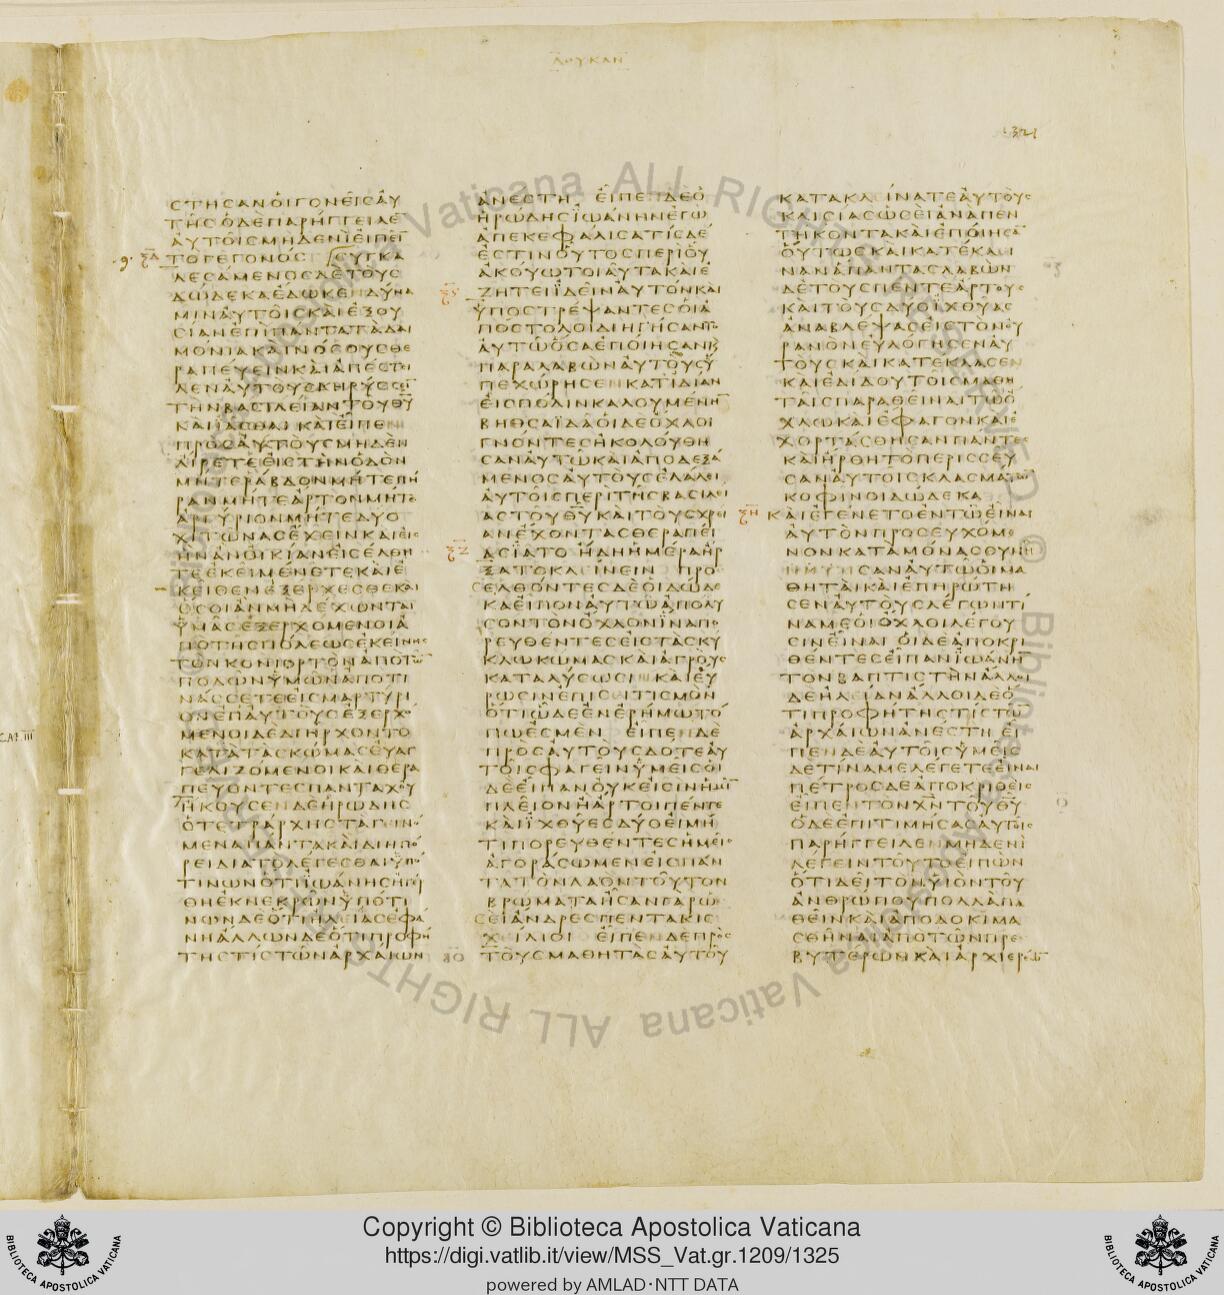 ΛΟΥΚΑΝ
1321
ϹΤΗϹΑΝΟΙΓΟΝΕΙϹΑΥ
ΤΗϹΟΔΕΠΑΡΗΓΓΕΙΛΕ
ΑΥΤΟΙϹΜΗΔΕΝΙΕΙΠΕΙ
ΤΟΓΕΓΟΝΟϹ ϹΥΓΚΑ
ΛΕϹΑΜΕΝΟϹΔΕΤΟΥϹ
ΔΩΔΕΚΑΕΔΩΚΕΝΔΥΝΑ
ΜΙΝΑΥΤΟΙϹΚΑΙΕΞΟΥ
ϹΙΑΝΕΠΙΠΑΝΤΑΤΑΔΑΙ
ΜΟΝΙΑΚΑΙΝΟϹΟΥϹΘΕ
ΡΑΠΕΥΕΙΝΚΑΙΑΠΕϹΤΙ
ΛΕΝΑΥΤΟΥϹΚΗΡΥϹϹΙ
ΤΗΝΒΑϹΙΛΕΙΑΝΤΟΥΘΥ
ΚΑΙΙΑϹΘΑΙ ΚΑΙΕΙΠΕΝ
ΠΡΟϹΑΥΤΟΥϹΜΗΔΕΝ
ΑΙΡΕΤΕΕΙϹΤΗΝΟΔΟΝ
ΜΗΤΕΡΑΒΔΟΝΜΗΤΕΠΗ
ΡΑΝΜΗΤΕΑΡΤΟΝΜΗΤΕ
ΑΡΓΥΡΙΟΝΜΗΤΕΔΥΟ
ΧΙΤΩΝΑϹΕΧΕΙΝΚΑΙΕΙϹ
ΗΝΑΝΟΙΚΙΑΝΕΙϹΕΛΘΗ
ΤΕΕΚΕΙΜΕΝΕΤΕΚΑΙΕ
ΚΕΙΘΕΝΕΞΕΡΧΕϹΘΕΚΑΙ
ΟϹΟΙΑΝΜΗΔΕΧΩΝΤΑΙ
ΥΜΑϹΕΞΕΡΧΟΜΕΝΟΙΑ
ΠΟΤΗϹΠΟΛΕΩϹΕΚΕΙΝΗϹ
ΤΟΝΚΟΝΙΟΡΤΟΝΑΠΟΤΩ
ΠΟΔΩΝΥΜΩΝΑΠΟΤΙ
ΝΑϹϹΕΤΕΕΙϹΜΑΡΤΥΡΙ
ΟΝΕΠΑΥΤΟΥϹΕΞΕΡΧΟ
ΜΕΝΟΙΔΕΔΙΗΡΧΟΝΤΟ
ΚΑΤΑΤΑϹΚΩΜΑϹΕΥΑΓ
ΓΕΛΙΖΟΜΕΝΟΙΚΑΙΘΕΡΑ
ΠΕΥΟΝΤΕϹΠΑΝΤΑΧΟΥ
ΗΚΟΥϹΕΝΔΕΗΡΩΔΗϹ
ΟΤΕΤΡΑΡΧΗϹΤΑΓΕΙΝΟ
ΜΕΝΑΠΑΝΤΑΚΑΙΔΙΗΠΟ
ΡΕΙΔΙΑΤΟΛΕΓΕϹΘΑΙΥΠΟ
ΤΙΝΩΝΟΤΙΙΩΑΝΗϹΗΓΕΡ
ΘΗΕΚΝΕΚΡΩΝΥΠΟΤΙ
ΝΩΝΔΕΟΤΙΗΛΕΙΑϹΕΦΑ
ΝΗΑΛΛΩΝΔΕΟΤΙΠΡΟΦΗ
ΤΗϹΤΙϹΤΩΝΑΡΧΑΙΩΝ
ΑΝΕϹΤΗ ΕΙΠΕΝΔΕΟ
ΗΡΩΔΗϹΙΩΑΝΗΝΕΓΩ
ΑΠΕΚΕΦΑΛΙϹΑΤΙϹΔΕ
ΕϹΤΙΝΟΥΤΟϹΠΕΡΙΟΥ
ΑΚΟΥΩΤΟΙΑΥΤΑΚΑΙΕ
ΖΗΤΕΙΙΔΕΙΝΑΥΤΟΝΚΑΙ
ΥΠΟϹΤΡΕΨΑΝΤΕϹΟΙΑ
ΠΟϹΤΟΛΟΙΔΙΗΓΗϹΑΝΤΟ
ΑΥΤΩΟϹΑΕΠΟΙΗϹΑΝΚ
ΠΑΡΑΛΑΒΩΝΑΥΤΟΥϹΥ
ΠΕΧΩΡΗϹΕΝΚΑΤΙΔΙΑΝ
ΕΙϹΠΟΛΙΝΚΑΛΟΥΜΕΝΗ
ΒΗΘϹΑΙΔΑΟΙΔΕΟΧΛΟΙ
ΓΝΟΝΤΕϹΗΚΟΛΟΥΘΗ
ϹΑΝΑΥΤΩΚΑΙΑΠΟΔΕΞΑ
ΜΕΝΟϹΑΥΤΟΥϹΕΛΑΛΕΙ
ΑΥΤΟΙϹΠΕΡΙΤΗϹΒΑϹΙΛΕΙ
ΑϹΤΟΥΘΥΚΑΙΤΟΥϹΧΡΕΙ
ΑΝΕΧΟΝΤΑϹΘΕΡΑΠΕΙ
ΑϹΙΑΤΟ ΗΔΗΗΜΕΡΑΗΡ
ΞΑΤΟΚΛΙΝΕΙΝ ΠΡΟ
ϹΕΛΘΟΝΤΕϹΔΕΟΙΔΩΔΕ
ΚΑΕΙΠΟΝΑΥΤΩΑΠΟΛΥ
ϹΟΝΤΟΝΟΧΛΟΝΙΝΑΠΟ
ΡΕΥΘΕΝΤΕϹΕΙϹΤΑϹΚΥ
ΚΛΩΚΩΜΑϹΚΑΙΑΓΡΟΥϹ
ΚΑΤΑΛΥϹΩϹΙΝΚΑΙΕΥ
ΡΩϹΙΝΕΠΙϹΙΤΙϹΜΟΝ
ΟΤΙΩΔΕΕΝΕΡΗΜΩΤΟ
ΠΩΕϹΜΕΝ ΕΙΠΕΝΔΕ
ΠΡΟϹΑΥΤΟΥϹΔΟΤΕΑΥ
ΤΟΙϹΦΑΓΕΙΝΥΜΕΙϹΟΙ
ΔΕΕΙΠΑΝΟΥΚΕΙϹΙΝΗΜΙ
ΠΛΕΙΟΝΗΑΡΤΟΙΠΕΝΤΕ
ΚΑΙΙΧΘΥΕϹΔΥΟΕΙΜΗ
ΤΙΠΟΡΕΥΘΕΝΤΕϹΗΜΕΙϹ
ΑΓΟΡΑϹΩΜΕΝΕΙϹΠΑΝ
ΤΑΤΟΝΛΑΟΝΤΟΥΤΟΝ
ΒΡΩΜΑΤΑΗϹΑΝΓΑΡΩ
ϹΕΙΑΝΔΡΕϹΠΕΝΤΑΚΙϹ
ΧΕΙΛΙΟΙ ΕΙΠΕΝΔΕΠΡΟϹ
ΤΟΥϹΜΑΘΗΤΑϹΑΥΤΟΥ
ΚΑΤΑΚΛΙΝΑΤΕΑΥΤΟΥϹ
ΚΛΙϹΙΑϹΩϹΕΙΑΝΑΠΕΝ
ΤΗΚΟΝΤΑΚΑΙΕΠΟΙΗϹΑ
ΟΥΤΩϹΚΑΙΚΑΤΕΚΛΙ
ΝΑΝΑΠΑΝΤΑϹΛΑΒΩΝ
ΔΕΤΟΥϹΠΕΝΤΕΑΡΤΟΥϹ
ΚΑΙΤΟΥϹΔΥΟΙΧΘΥΑϹ
ΑΝΑΒΛΕΨΑϹΕΙϹΤΟΝΟΥ
ΡΑΝΟΝΕΥΛΟΓΗϹΕΝΑΥ
ΤΟΥϹΚΑΙΚΑΤΕΚΛΑϹΕΝ
ΚΑΙΕΔΙΔΟΥΤΟΙϹΜΑΘΗ
ΤΑΙϹΠΑΡΑΘΕΙΝΑΙΤΩΟ
ΧΛΩΚΑΙΕΦΑΓΟΝΚΑΙΕ
ΧΟΡΤΑϹΘΗϹΑΝΠΑΝΤΕϹ
ΚΑΙΗΡΘΗΤΟΠΕΡΙϹϹΕΥ
ϹΑΝΑΥΤΟΙϹΚΛΑϹΜΑΤΩ
ΚΟΦΙΝΟΙΔΩΔΕΚΑ
ΚΑΙΕΓΕΝΕΤΟΕΝΤΩΕΙΝΑΙ
ΑΥΤΟΝΠΡΟϹΕΥΧΟΜΕ
ΝΟΝΚΑΤΑΜΟΝΑϹϹΥΝΗ
ΝΤΗϹΑΝΑΥΤΩΟΙΜΑ
ΘΗΤΑΙΚΑΙΕΠΗΡΩΤΗ
ϹΕΝΑΥΤΟΥϹΛΕΓΩΝΤΙ
ΝΑΜΕΟΙΟΧΛΟΙΛΕΓΟΥ
ϹΙΝΕΙΝΑΙ ΟΙΔΕΑΠΟΚΡΙ
ΘΕΝΤΕϹΕΙΠΑΝΙΩΑΝΗ
ΤΟΝΒΑΠΤΙϹΤΗΝΑΛΛΟΙ
ΔΕΗΛΕΙΑΝΑΛΛΟΙΔΕΟ
ΤΙΠΡΟΦΗΤΗϹΤΙϹΤΩ
ΑΡΧΑΙΩΝΑΝΕϹΤΗ ΕΙ
ΠΕΝΔΕΑΥΤΟΙϹΥΜΕΙϹ
ΔΕΤΙΝΑΜΕΛΕΓΕΤΕΕΙΝΑΙ
ΠΕΤΡΟϹΔΕΑΠΟΚΡΙΘΕΙϹ
ΕΙΠΕΝΤΟΝΧΝΤΟΥΘΥ
ΟΔΕΕΠΙΤΙΜΗϹΑϹΑΥΤΟΙϹ
ΠΑΡΗΓΓΕΙΛΕΝΜΗΔΕΝΙ
ΛΕΓΕΙΝΤΟΥΤΟΕΙΠΩΝ
ΟΤΙΔΕΙΤΟΝΥΙΟΝΤΟΥ
ΑΝΘΡΩΠΟΥΠΟΛΛΑΠΑ
ΘΕΙΝΚΑΙΑΠΟΔΟΚΙΜΑ
ϹΘΗΝΑΙΑΠΟΤΩΝΠΡΕ
ΒΥΤΕΡΩΝΚΑΙΑΡΧΙΕΡΕΩ
Copyright © Biblioteca Apostolica Vaticana
https://digi.vatlib.it/view/MSS_Vat.gr.1209/1325
powered by AMLAD·NTT DATA